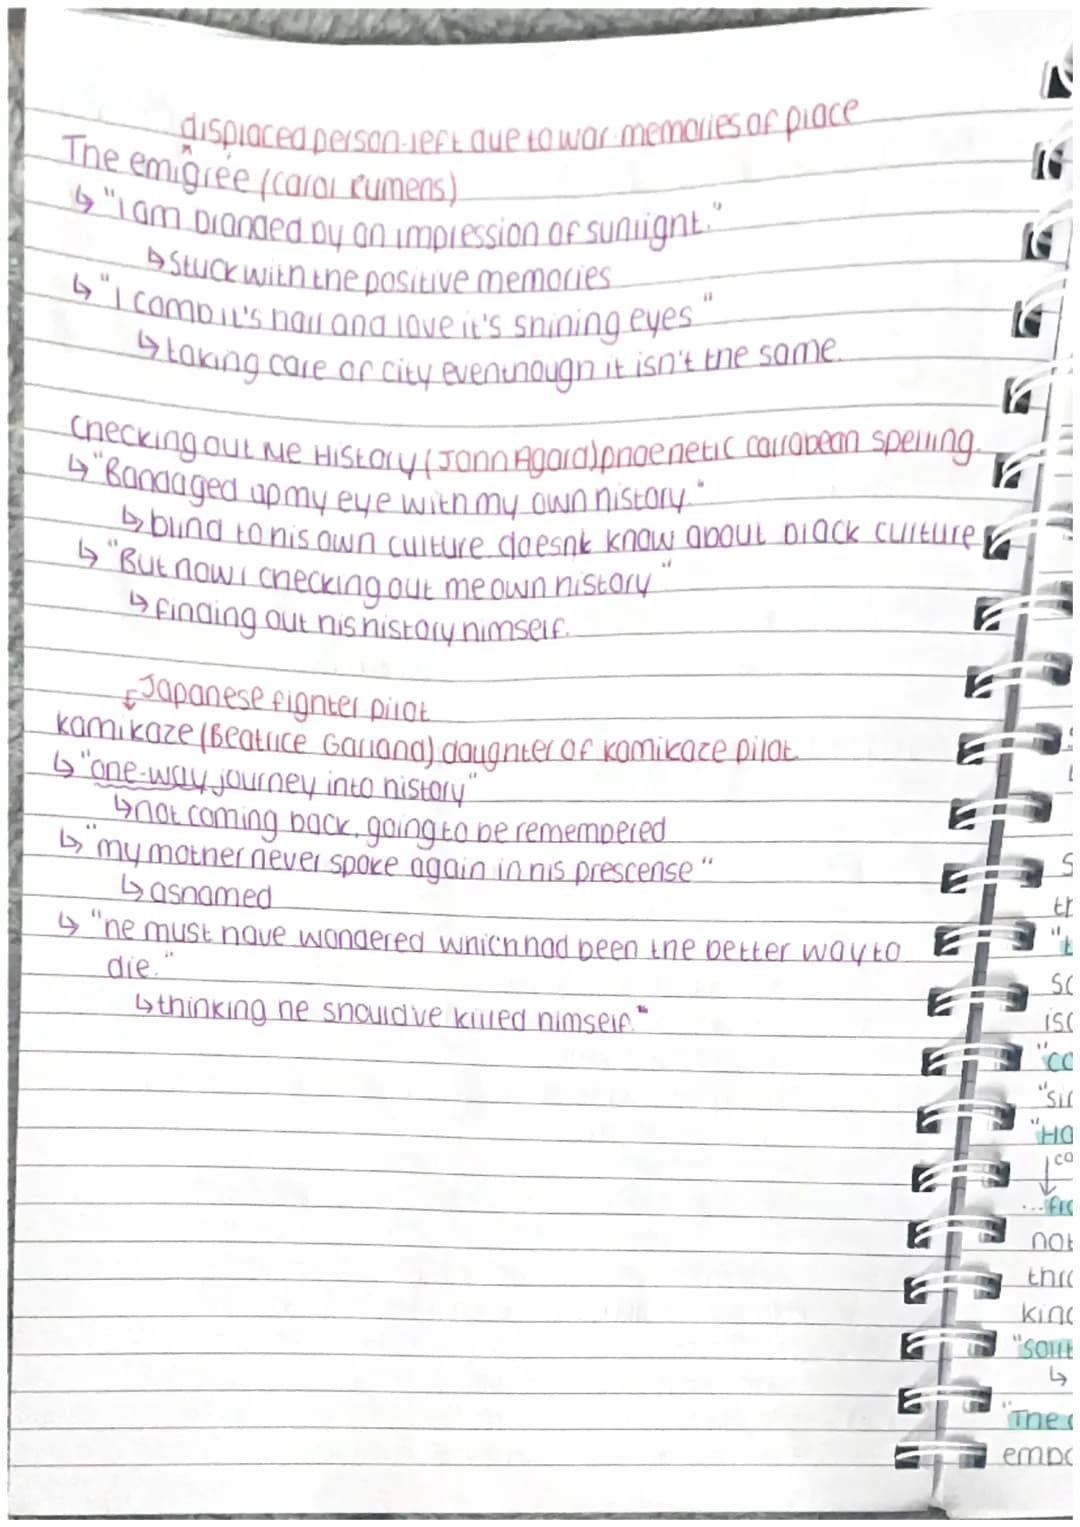 displaced person-left due to war-memories of place
The emigrée (Carol Rumens)
↳ "I am branded by an impression of sunlight."
↳ Stuck with the positive memories
↳ "I comb it's hair and love it's shining eyes"
↳ taking care of city eventhough it isn't the same.
Checking out Me History (John Agard) phoenetic carrabean spelling.
↳ "Bandaged up my eye with my own history."
↳ blind to his own culture doesnt know about black culture
↳ "But now i checking out me own history"
↳ finding out his history himself.
Japanese fighter pilot
kamikaze (Beatrice Garland) daughter of kamikaze pilot.
↳ "one-way journey into history"
↳ not coming back, going to be remembered
↳ "my mother never spoke again in his prescense"
↳ ashamed
↳ "he must have wondered which had been the better way to
die."
↳ thinking he should've killed himself."
S
th
"t
so
iso
"co
"sir
"Ho
↓ co
...fro
not
thro
kind
"solit
↳
"The
empo